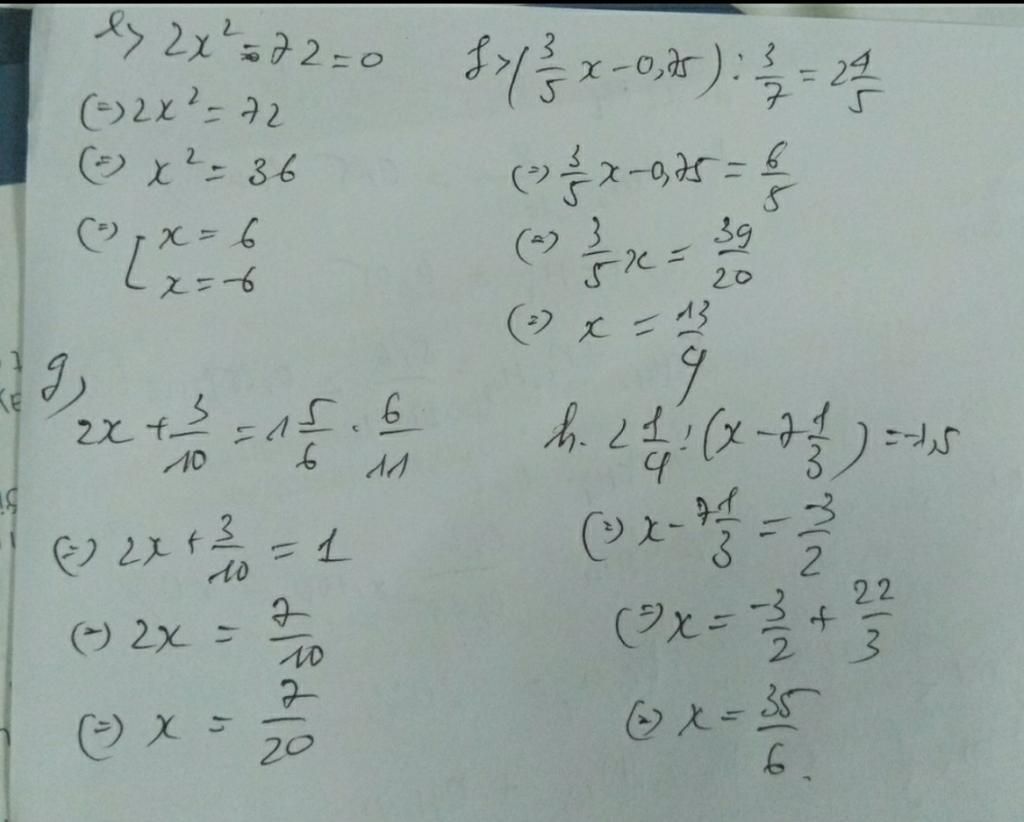 e> 2x² - 72 = 0
(=) 2x² = 72
(=) x² = 36
(=) [ x = 6
x = -6
f> (3/5 x - 0,75) : 3/7 = 2 4/5
(=) 3/5 x - 0,75 = 6/5
(=) 3/5 x = 39/20
(=) x = 13/4
g,
2x + 3/10 = 1 5/6 . 6/11
(=) 2x + 3/10 = 1
(=) 2x = 7/10
(=) x = 7/20
h. 2 1/4 : (x - 7 1/3) = -1,5
(=) x - 7 1/3 = -3/2
(=) x = -3/2 + 22/3
(=) x = 35/6.